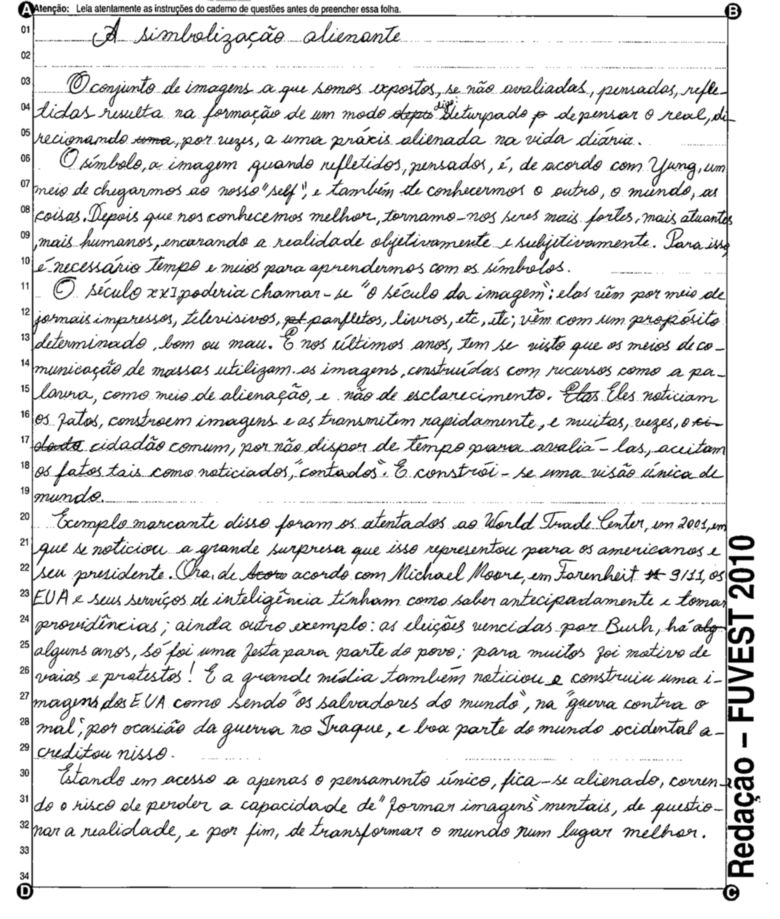 Atenção: Leia atentamente as instruções do caderno de questões antes de preencher essa folha.
A simbolização alienante
O conjunto de imagens a que somos expostos, se não avaliadas, pensadas, refle-
tidas resulta na formação de um modo digo deturpado p depensar o real, di-
recionando uma, por vezes, a uma práxis alienada na vida diária.
O símbolo, a imagem quando refletidos, pensados, é, de acordo com Yung, um
meio de chegarmos ao nosso "self", e também de conhecermos o outro, o mundo, as
coisas. Depois que nos conhecemos melhor, tornamo-nos seres mais fortes, mais atuantes
, mais humanos, encarando a realidade objetivamente e subjetivamente. Para isso
é necessário tempo e meios para aprendermos com os símbolos.
O século XXI poderia chamar-se "o século da imagem"; elas vêm por meio de
jornais impressos, televisivos, panfletos, livros, etc, etc; vêm com um propósito
determinado, bom ou mau. E nos últimos anos, tem se visto que os meios de co-
municação de massas utilizam as imagens, construídas com recursos como a pa-
lavra, como meio de alienação, e não de esclarecimento. Elas Eles noticiam
os fatos, constroem imagens e as transmitem rapidamente, e muitas, vezes, o ci-
dado cidadão comum, por não dispor de tempo para avaliá-las, aceitam
os fatos tais como noticiados, "contados". E constrói-se uma visão única de
mundo.
Exemplo marcante disso foram os atentados ao World Trade Center, em 2001, em
que se noticiou a grande surpresa que isso representou para os americanos e
seu presidente. Ora, de Acoro acordo com Michael Moore, em Farenheit 9/11, os
EUA e seus serviços de inteligência tinham como saber antecipadamente e tomar
providências; ainda outro exemplo: as eleições vencidas por Bush, há alg
alguns anos, só foi uma festa para parte do povo; para muitos foi motivo de
vaias e protestos! E a grande mídia também noticiou e construiu uma i-
magens dos EUA como sendo "os salvadores do mundo", na "guerra contra o
mal", por ocasião da guerra no Iraque, e boa parte do mundo ocidental a-
creditou nisso.
Estando em acesso a apenas o pensamento único, fica-se alienado, corren-
do o risco de perder a capacidade de "formar imagens" mentais, de questio-
nar a realidade, e por fim, de transformar o mundo num lugar melhor.
Redação – FUVEST 2010